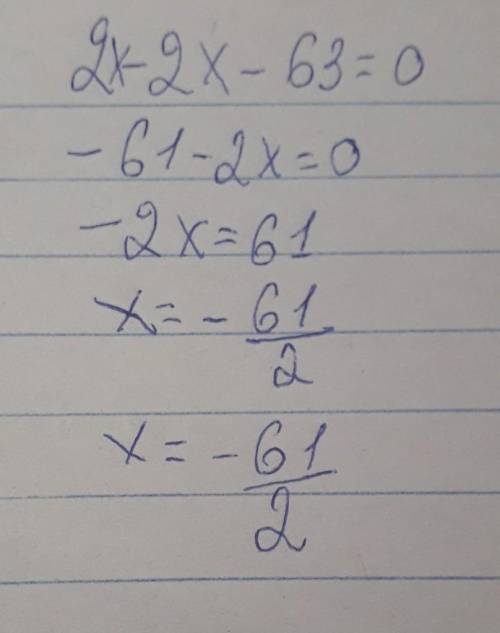 2x-2x-63=0
-61-2x=0
-2x=61
x=-61/2
x=-61/2